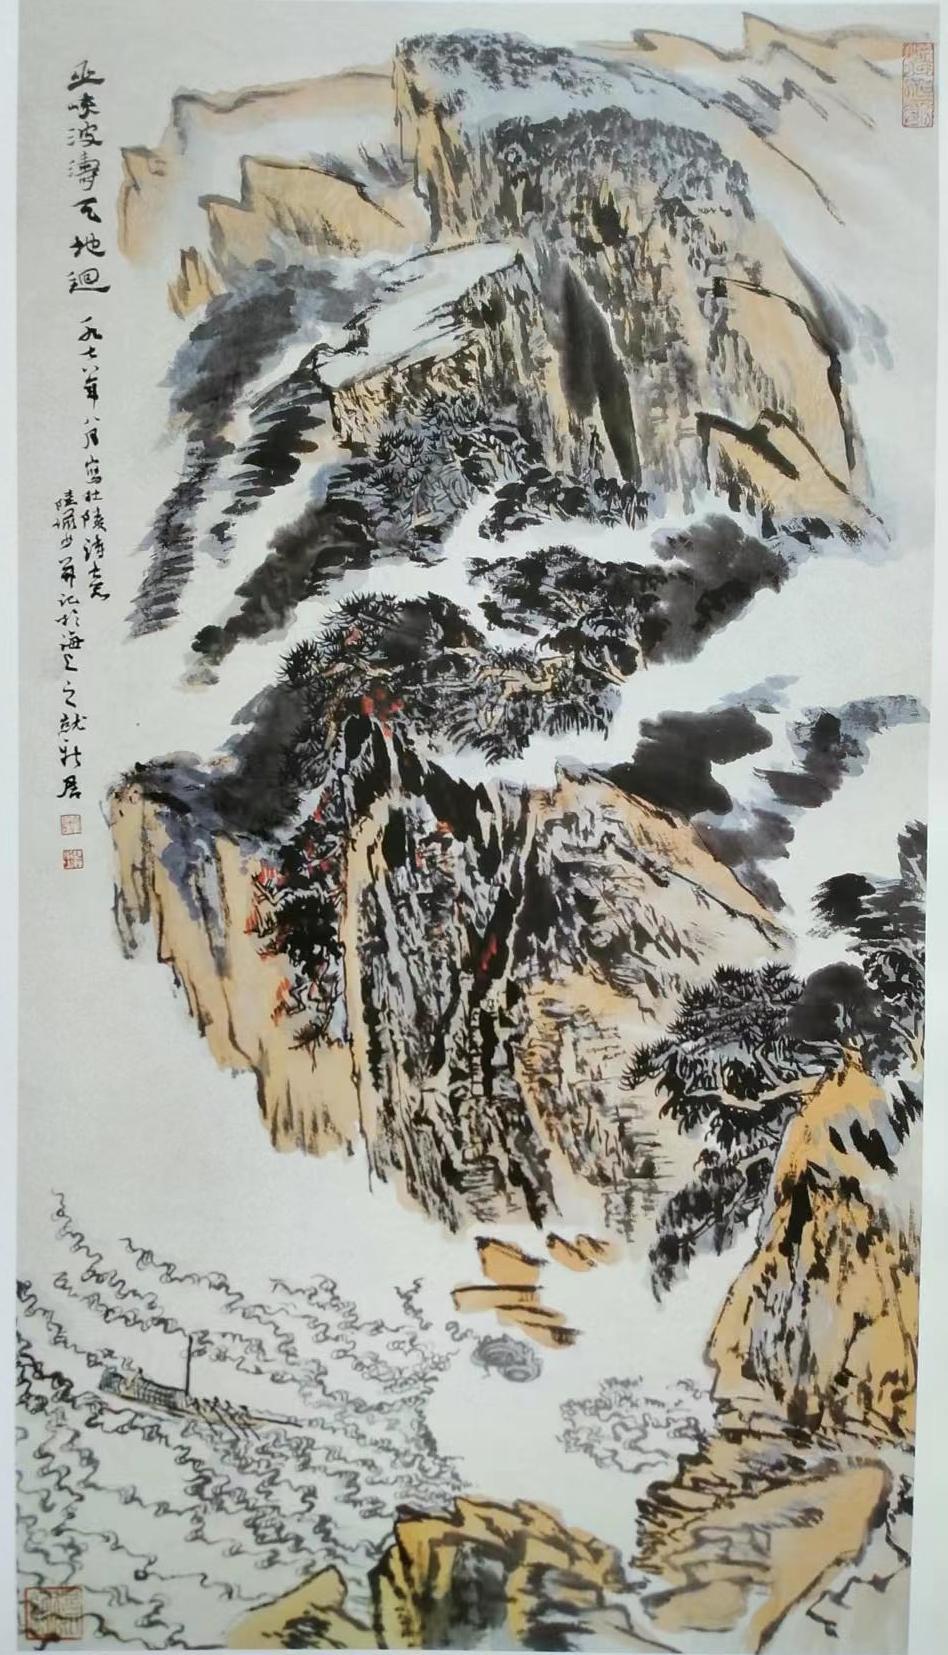 巫峽波濤天地迴 一九七八年八月寫杜陵詩意
陸儼少并記於海上之就新居